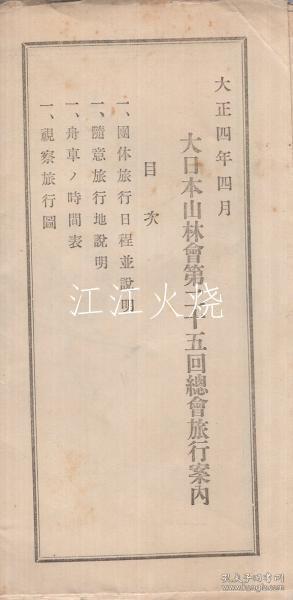 大正四年四月
大日本山林會第二十五回總會旅行案内
目次
一、團体旅行日程並說明
一、隨意旅行地說明
一、舟車ノ時間表
一、視察旅行圖
江江火烧